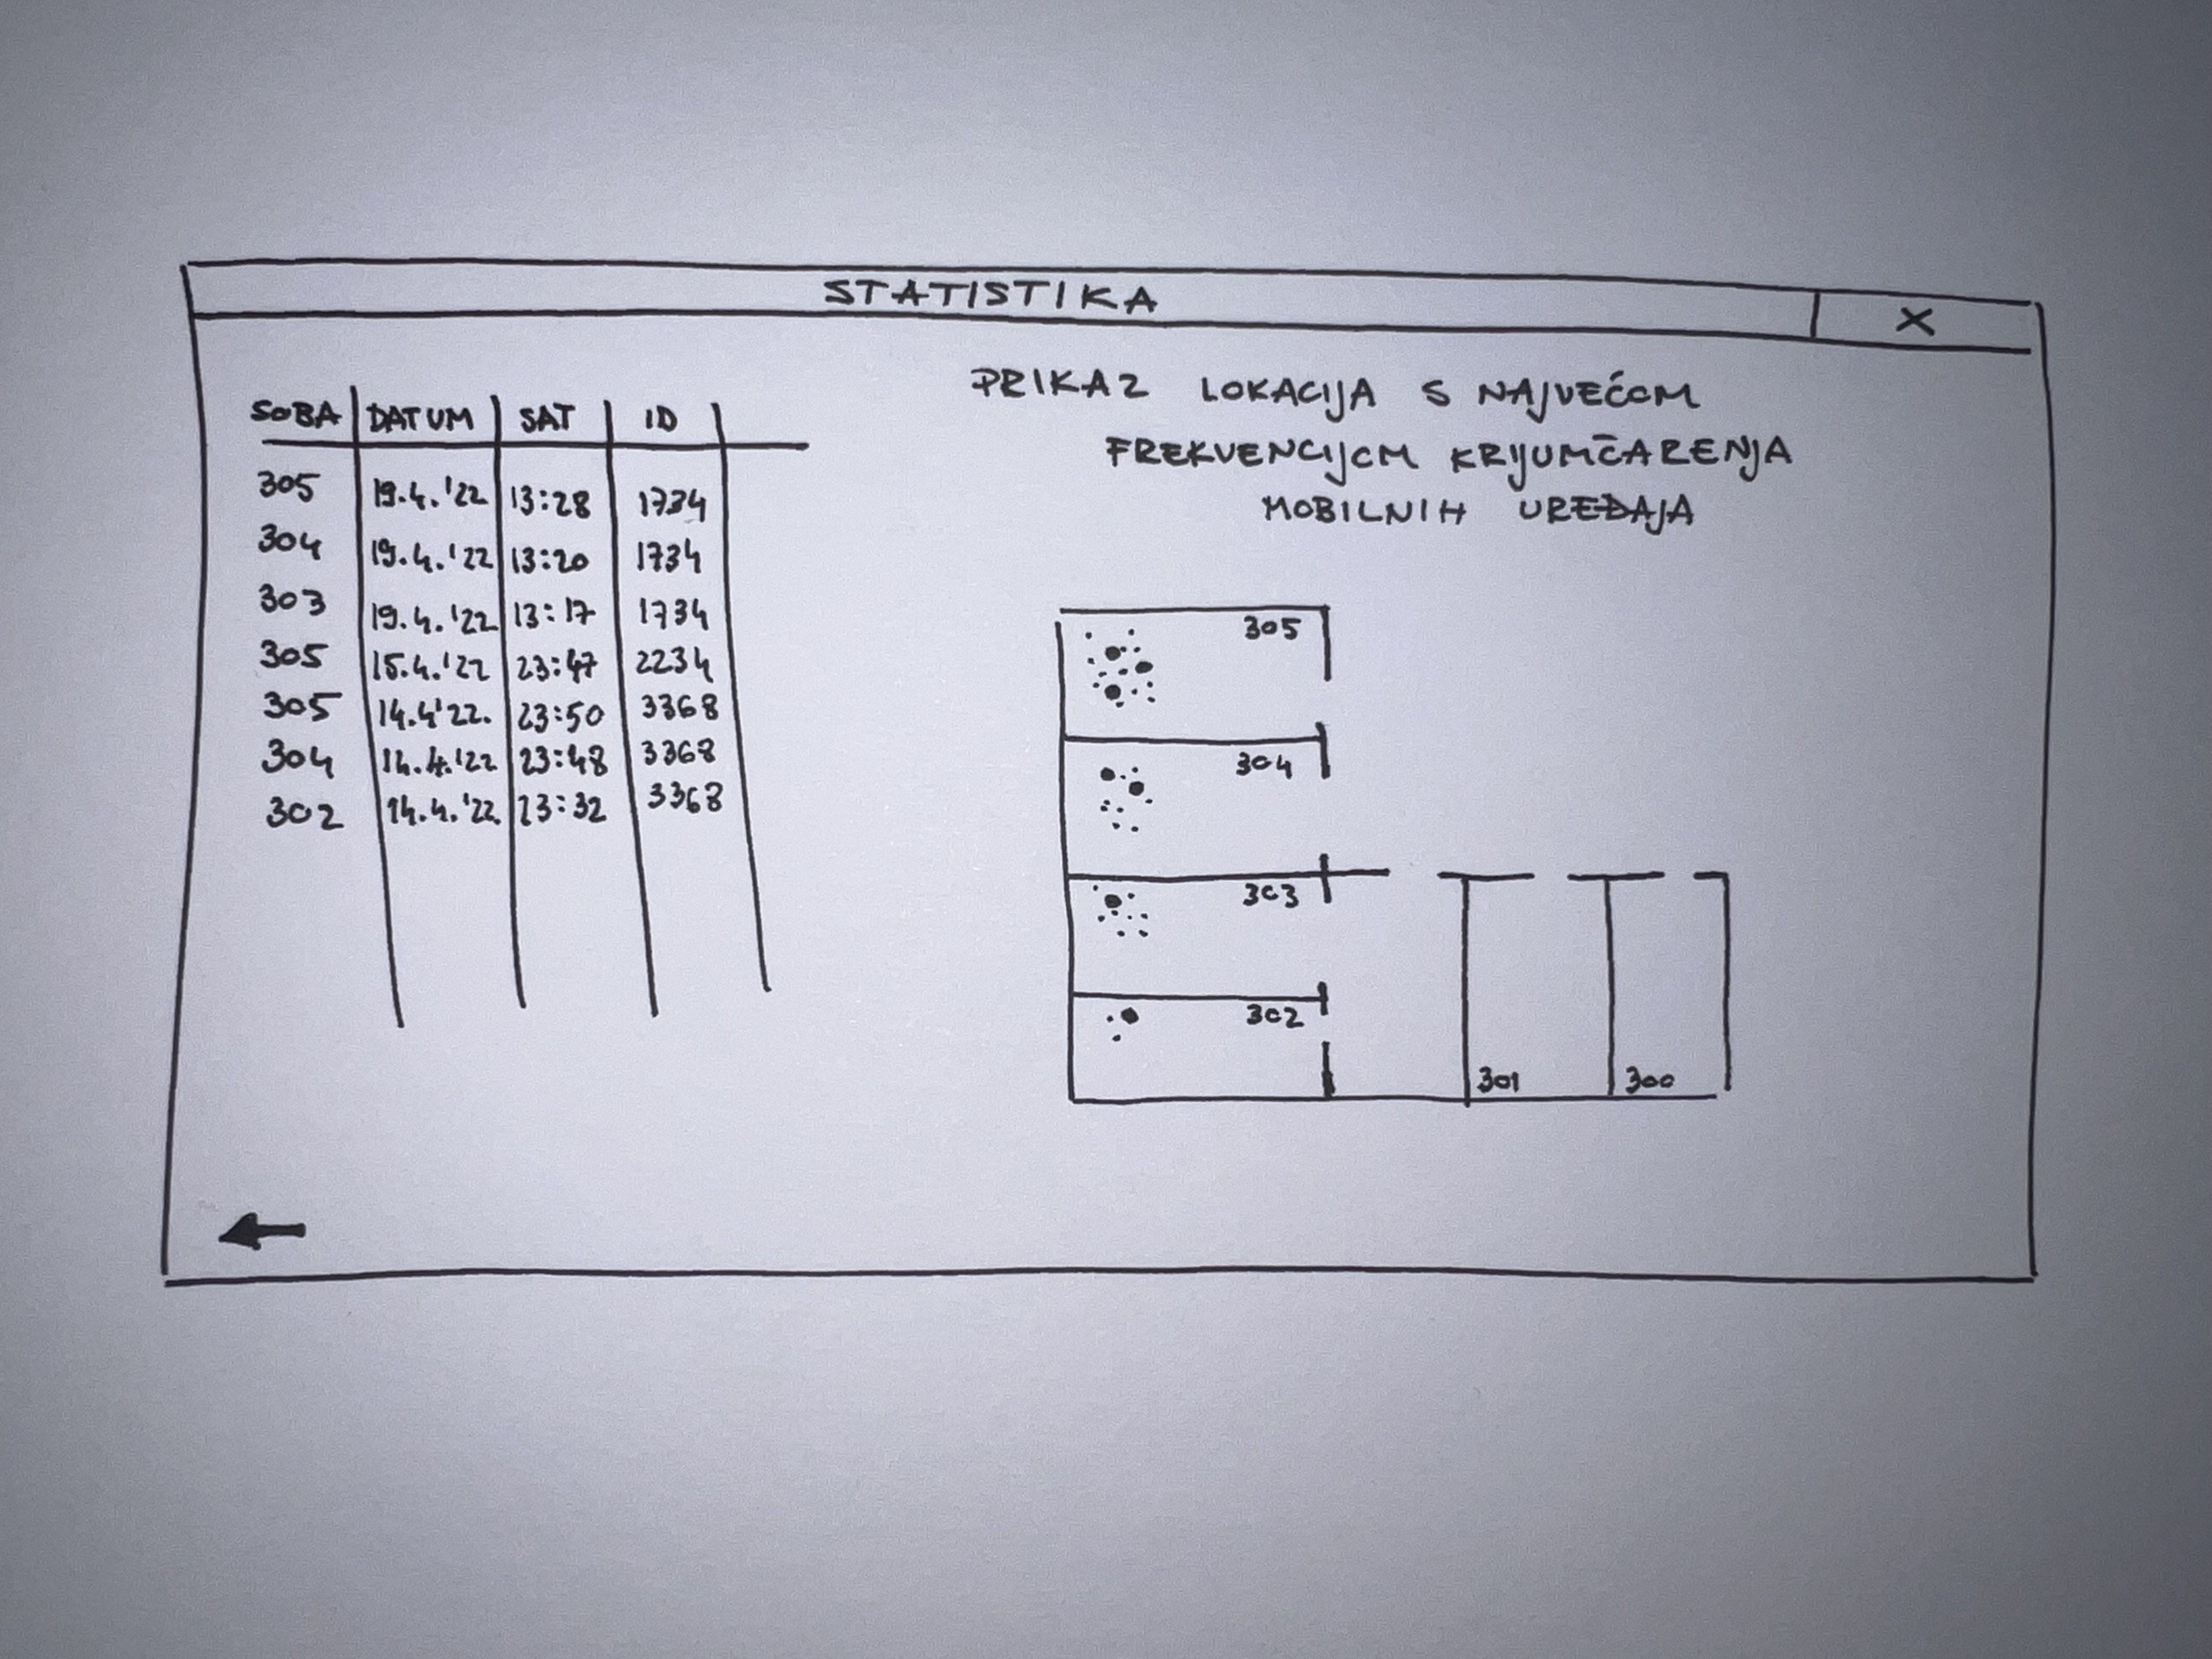 STATISTIKA X
SOBA DATUM SAT ID
305 19.4.'22 13:28 1734
304 19.4.'22 13:20 1734
303 19.4.'22 13:17 1734
305 15.4.'22 23:47 2234
305 14.4'22. 23:50 3368
304 14.4.'22 23:48 3368
302 14.4.'22. 23:32 3368
PRIKAZ LOKACIJA S NAJVEĆOM
FREKVENCIJOM KRIJUMČARENJA
MOBILNIH UREĐAJA
305
304
303
302
301 300